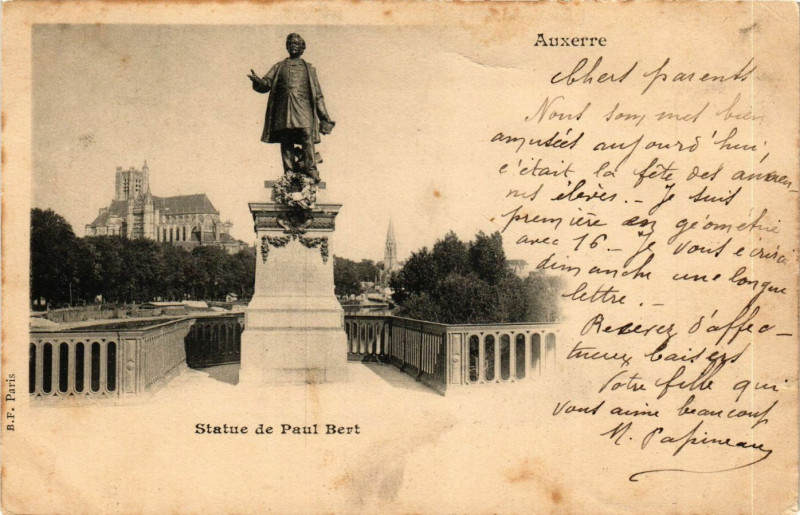 Auxerre
Chers parents
Nous sommes bien
amusées aujourd'hui,
c'était la fête des ancien
nes élèves. - Je suis
première en géométrie
avec 16 - Je vous écrirai
dimanche une longue
lettre. -
Recevez d'affec-
tueux baisers
Votre fille qui
vous aime beaucoup
M. Papineau
B.F. Paris
Statue de Paul Bert